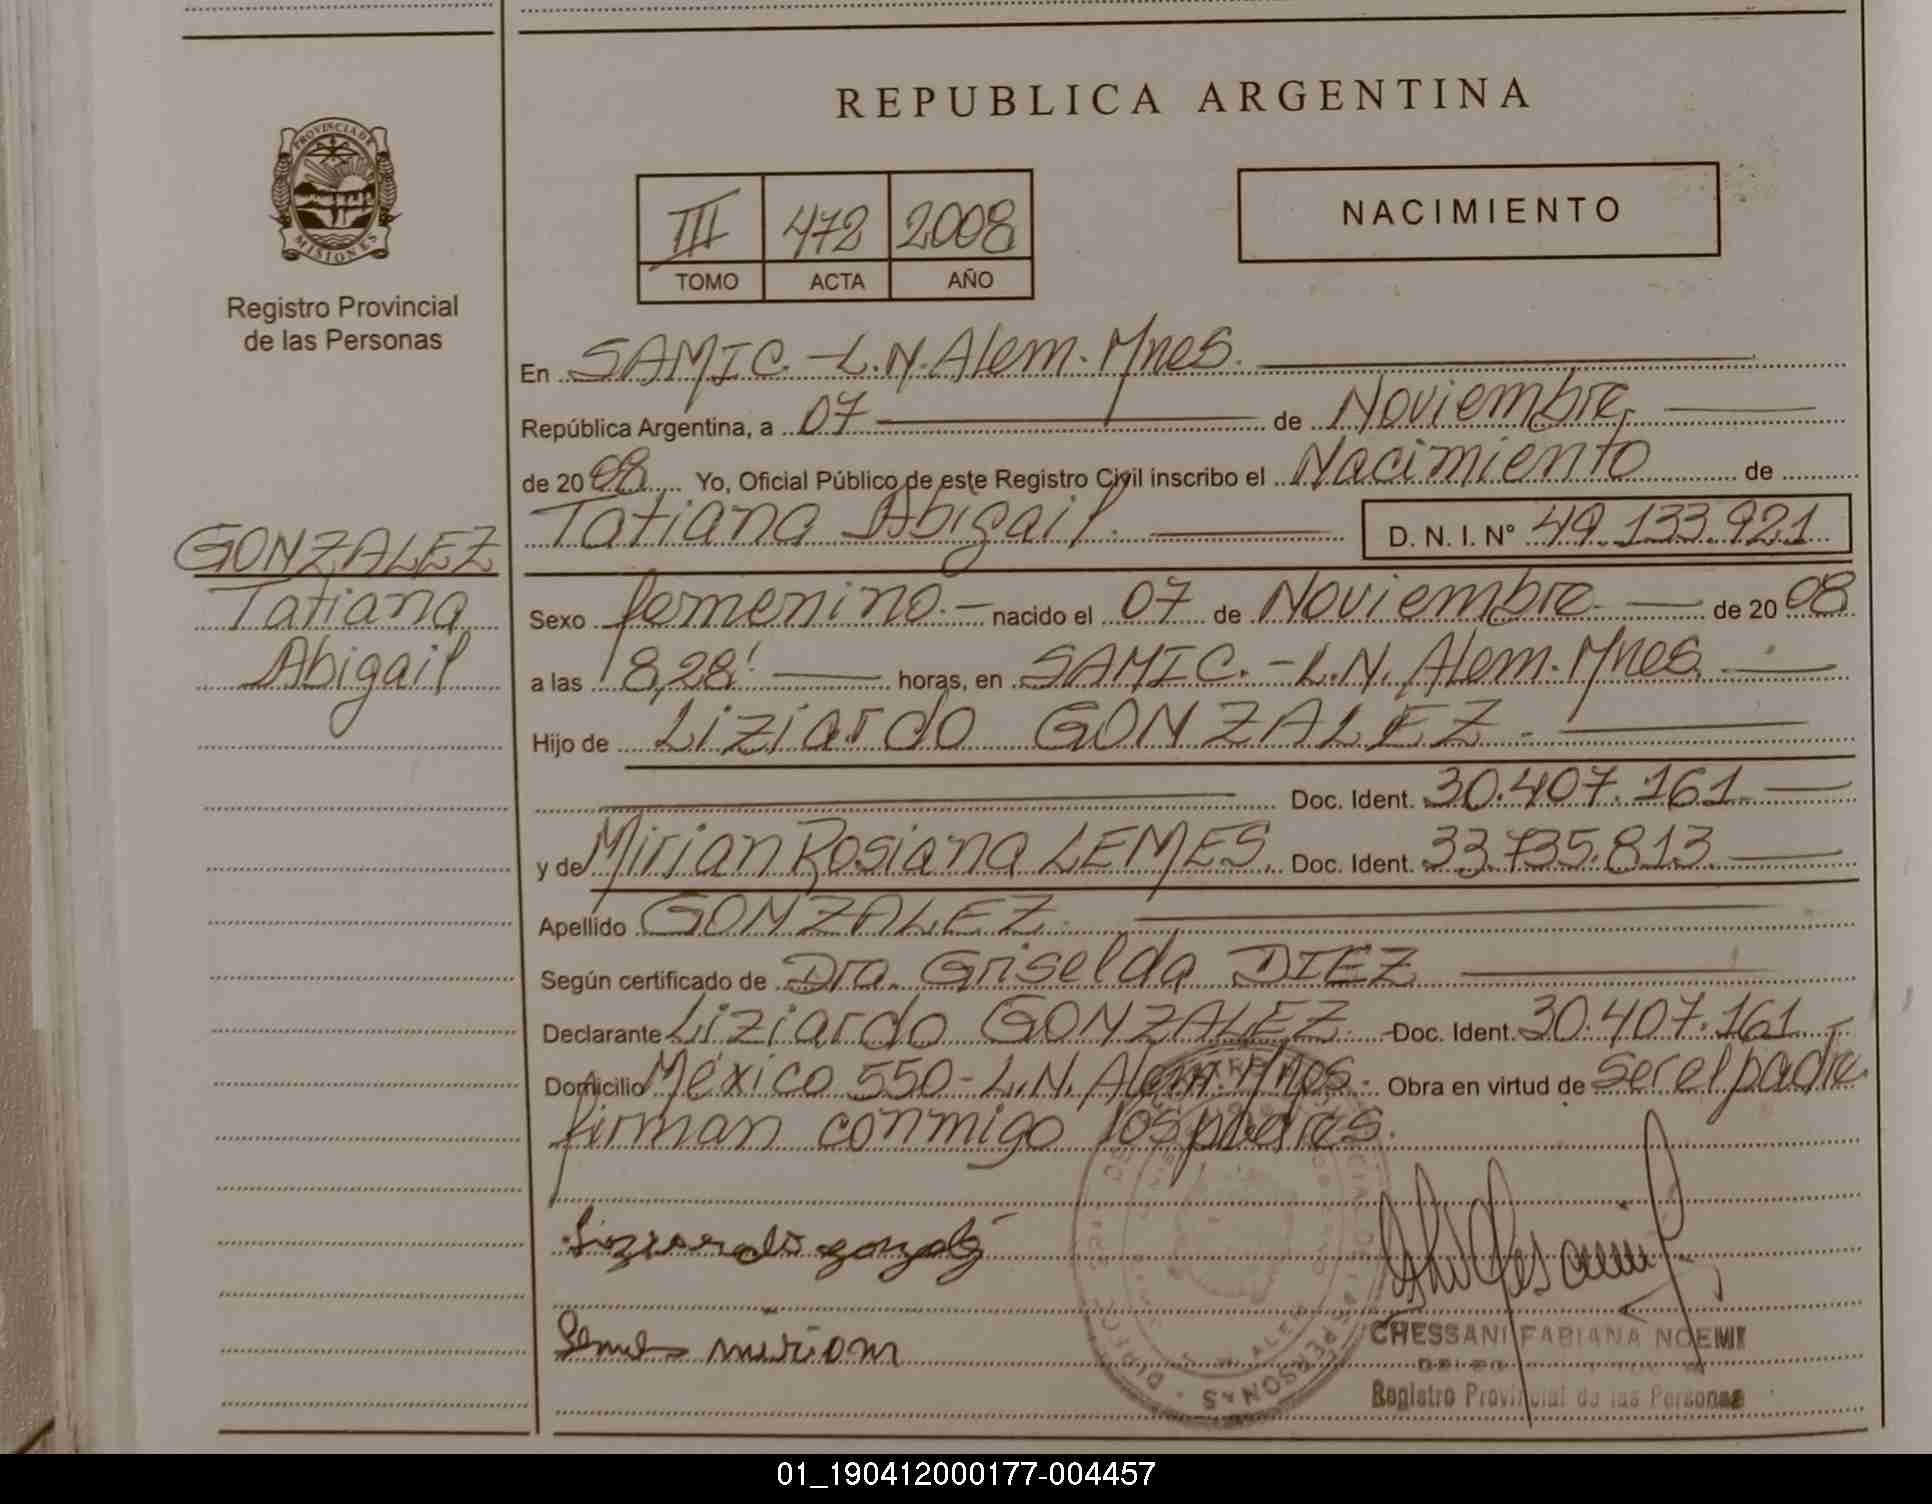 REPUBLICA ARGENTINA
PROVINCIA DE
MISIONES
Registro Provincial
de las Personas
III 472 2008
TOMO ACTA AÑO
NACIMIENTO
En SAMIC.-L.N.Alem.Mnes.
República Argentina, a 07 de Noviembre
de 2008 Yo, Oficial Público de este Registro Civil inscribo el Nacimiento de
Tatiana Abigail. D. N. I. Nº 49.133.921
GONZALEZ
Tatiana
Abigail
Sexo femenino.- nacido el 07 de Noviembre de 2008
a las 8,28' horas, en SAMIC.-L.N. Alem.Mnes.
Hijo de Liziardo GONZALEZ.
Doc. Ident. 30.407.161
y de Mirian Rosiana LEMES. Doc. Ident. 33.735.813
Apellido GONZALEZ.
Según certificado de Dra. Griselda DIEZ
Declarante Liziardo GONZALEZ. Doc. Ident. 30.407.161
Domicilio México 550-L.N. Alem.Mnes. Obra en virtud de ser el padre
firman conmigo los padres.
Lemes miriam
CHESSANI FABIANA NOEMI
Registro Provincial de las Personas
PERSONAS
01_190412000177-004457